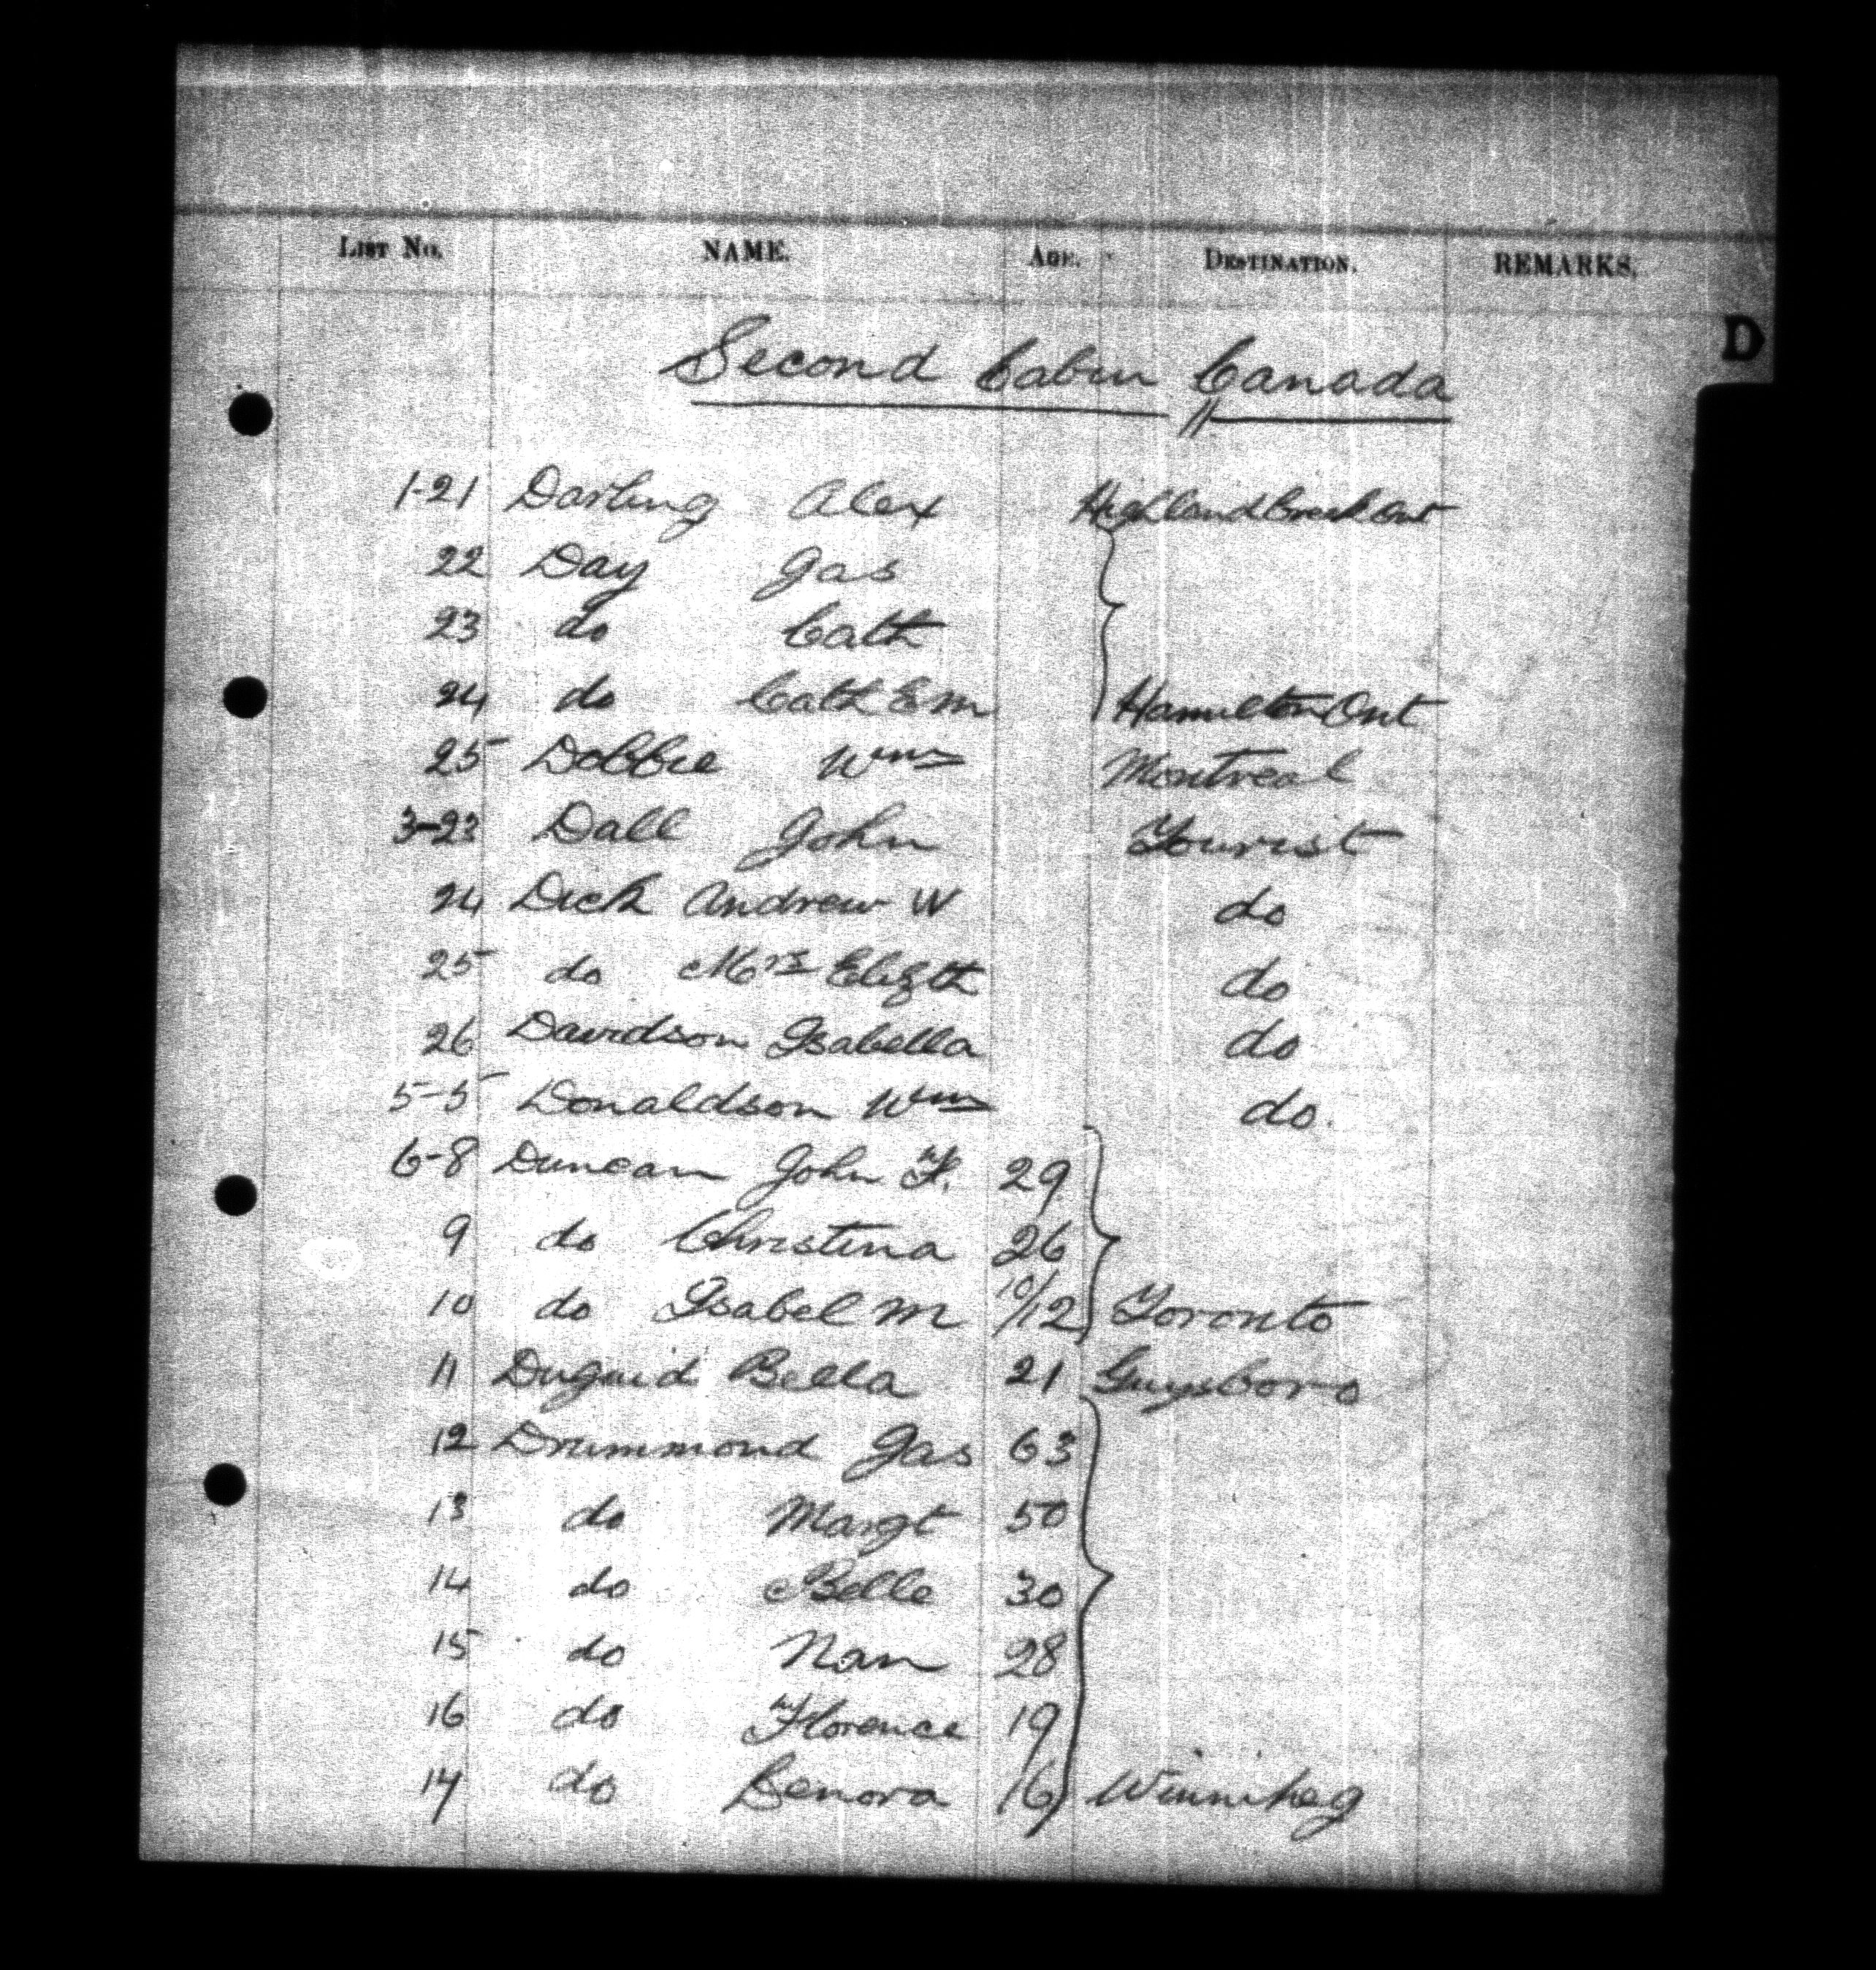 LIST NO. NAME. AGE. DESTINATION. REMARKS.
D
Second Cabin Canada
1-21 Darling Alex Highland Creek Ont
22 Day Jas
23 do Cath
24 do Cath E m Hamilton Ont
25 Dobbie Wm Montreal
3-23 Dall John Tourist
24 Dick Andrew W do
25 do Mrs Elizth do
26 Davidson Isabella do
5-5 Donaldson Wm do.
6-8 Duncan John F. 29
9 do Christina 26
10 do Isabel m 10/12 Toronto
11 Duguid Bella 21 Guysboro
12 Drummond Jas 63
13 do Margt 50
14 do Belle 30
15 do Nan 28
16 do Florence 19
17 do Lenora 16 Winnipeg